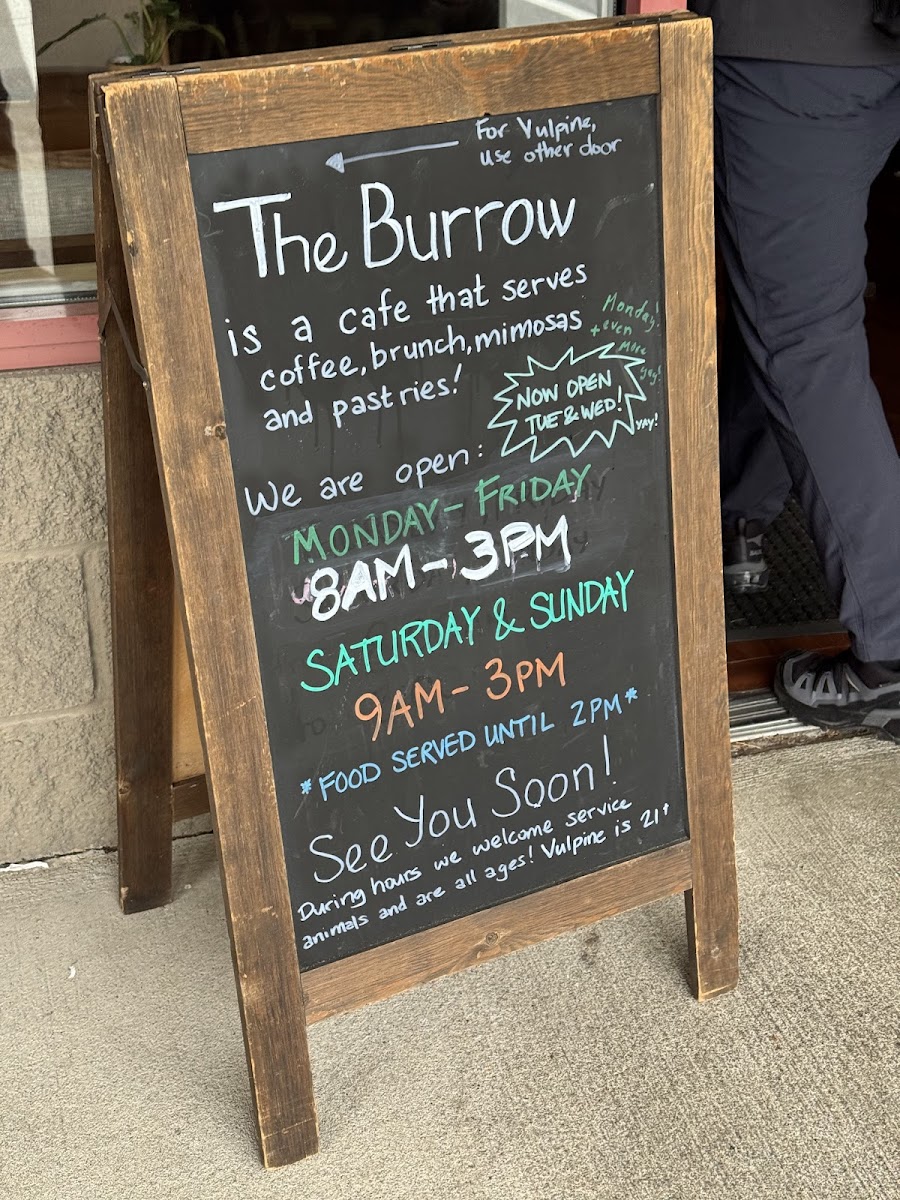 For Vulpine,
use other door
The Burrow
is a cafe that serves
coffee, brunch, mimosas
and pastries!
Monday!
+ even
more
yay!
NOW OPEN
TUE & WED!
YAY!
We are open:
MONDAY - FRIDAY
8AM - 3PM
SATURDAY & SUNDAY
9AM - 3PM
*FOOD SERVED UNTIL 2PM*
See You Soon!
During hours we welcome service
animals and are all ages! Vulpine is 21+